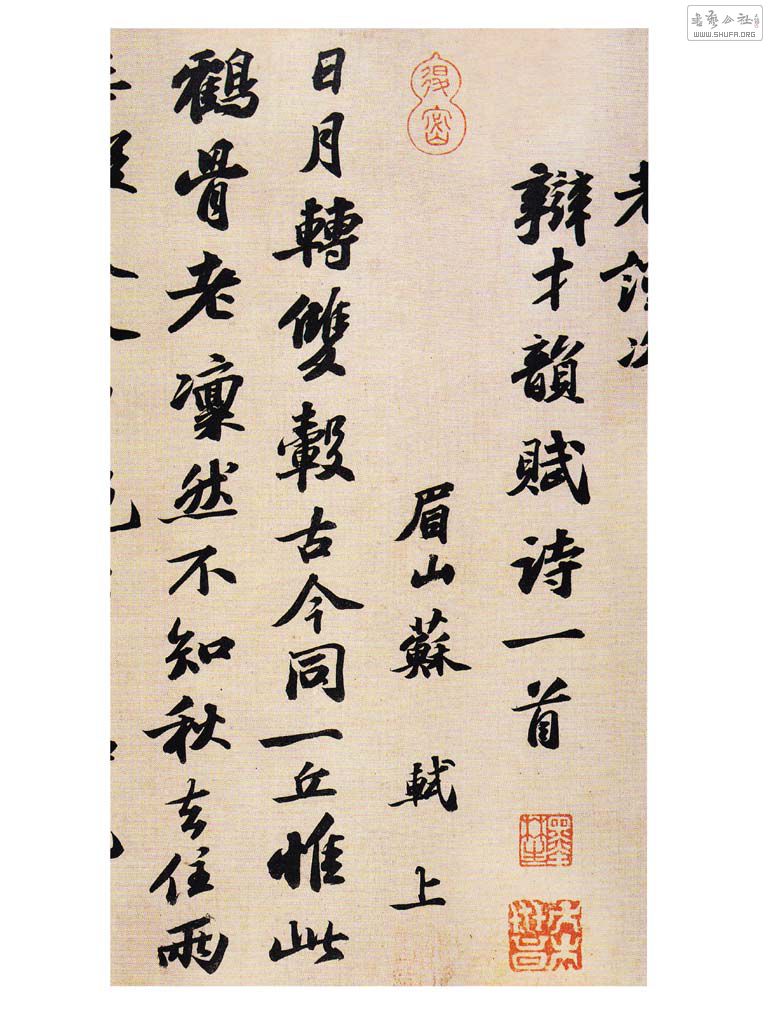 老謹次
辯才韻賦詩一首
眉山蘇軾上
日月轉雙轂古今同一丘惟此
鶴骨老凜然不知秋去住兩
書藝公社
WWW.SHUFA.ORG